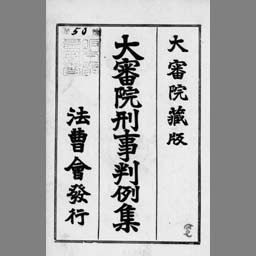 大審院藏版
大審院刑事判例集
法曹會發行
50